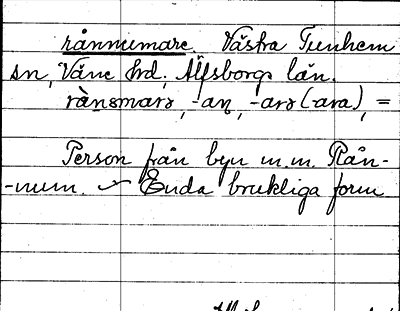 rånnumare. Västra Tunhem
sn, Väne hd, Älfsborgs län.
rànsmarə, -aṇ, -arə (-ara), =
Person från byn m.m. Rån-
-num. Enda brukliga form